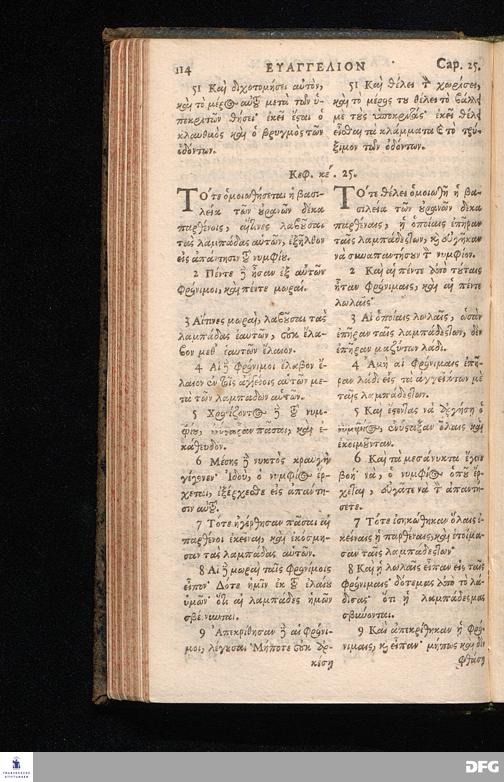 114 ΕΥΑΓΓΕΛΙΟΝ Cap. 25.
51 Καὶ διχοτομήσει αὐτὸν,
καὶ τὸ μέρος αὐτοῦ μετὰ τῶν ὑ-
ποκριτῶν θήσει· ἐκεῖ ἔσται ὁ
κλαυθμὸς καὶ ὁ βρυγμὸς τῶν
ὀδόντων.
51 Καὶ θέλει τὸν χωρίσει,
καὶ τὸ μέρος του θέλει τὸ βάλῃ
μὲ τοὺς ὑποκριτάς· ἐκεῖ θέλει
εἶσθαι τὰ κλάμματα καὶ τὸ τρύ-
ξιμον τῶν ὀδόντων.
Κεφ. κέ. 25.
ΤΟτε ὁμοιωθήσεται ἡ βασι-
λεία τῶν οὐρανῶν δέκα
παρθένοις, αἵτινες λαβοῦσαι
τὰς λαμπάδας αὐτῶν, ἐξῆλθον
εἰς ἀπάντησιν τοῦ νυμφίου.
2 Πέντε δὲ ἦσαν ἐξ αὐτῶν
φρόνιμοι, καὶ πέντε μωραί.
3 Αἵτινες μωραὶ, λαβοῦσαι τὰς
λαμπάδας ἑαυτῶν, οὐκ ἔλα-
βον μεθ᾽ ἑαυτῶν ἔλαιον.
4 Αἱ δὲ φρόνιμοι ἔλαβον ἔ-
λαιον ἐν τοῖς ἀγγείοις αὐτῶν με-
τὰ τῶν λαμπάδων αὐτῶν.
5 Χρονίζοντος δὲ τοῦ νυμ-
φίου, ἐνύσταξαν πᾶσαι, καὶ ἐ-
κάθευδον.
6 Μέσης δὲ νυκτὸς κραυγὴ
γέγονεν· Ἰδοὺ, ὁ νυμφίος ἔρ-
χεται, ἐξέρχεσθε εἰς ἀπάντη-
σιν αὐτοῦ.
7 Τότε ἠγέρθησαν πᾶσαι αἱ
παρθένοι ἐκεῖναι, καὶ ἐκόσμη-
σαν τὰς λαμπάδας αὐτῶν.
8 Αἱ δὲ μωραὶ ταῖς φρονίμοις
εἶπον· Δότε ἡμῖν ἐκ τοῦ ἐλαίου
ὑμῶν· ὅτι αἱ λαμπάδες ἡμῶν
σβέννυνται.
9 Ἀπεκρίθησαν δὲ αἱ φρόνι-
μοι, λέγουσαι· Μήποτε οὐκ ἀρ-
κέσῃ
ΤΟτε θέλει ὁμοιωθῆ ἡ βα-
σιλεία τῶν οὐρανῶν δέκα
παρθέναις, ἡ ὁποίαις ἐπῆραν
ταῖς λαμπάδεςτων, καὶ εὐγῆκαν
νὰ συναπαντήσουν τὸν νυμφίον.
2 Καὶ αἱ πέντε ἀπὸ τούταις
ἦταν φρόνιμαις, καὶ αἱ πέντε
λωλαῖς·
3 Αἱ ὁποίαις λωλαῖς, ὡσὰν
ἐπῆραν ταῖς λαμπάδεςτων, δὲν
ἐπῆραν μαζύτων λάδι.
4 Ἀμὴ αἱ φρόνιμαις ἐπῆ-
ραν λάδι εἰς τὰ ἀγγεῖάτων μὲ
ταῖς λαμπάδεςτων.
5 Καὶ ἔστωντας νὰ ἀργήσῃ ὁ
νυμφίος, ἐνύσταξαν ὅλαις καὶ
ἐκοιμοῦνταν.
6 Καὶ τὰ μεσάνυκτα ἔγινε
βοή· νὰ, ὁ νυμφίος ὁποῦ ἔρ-
χεται, εὐγᾶτε νὰ τὸν ἀπαντή-
σετε.
7 Τότε ἐσηκώθηκαν ὅλαις ἐ-
κείναις ἡ παρθέναις, καὶ ἑτοίμα-
σαν ταῖς λαμπάδεςτων·
8 Καὶ ἡ λωλαῖς εἶπαν εἰς ταῖς
φρόνιμαις· δότεμας ἀπὸ τὸ λά-
δισας· ὅτι ἡ λαμπάδεςμας
σβυώνται.
9 Καὶ ἀπεκρίθηκαν ἡ φρό-
νιμαις, καὶ εἶπαν· μήπως καὶ δὲν
φτάσῃ
DFG